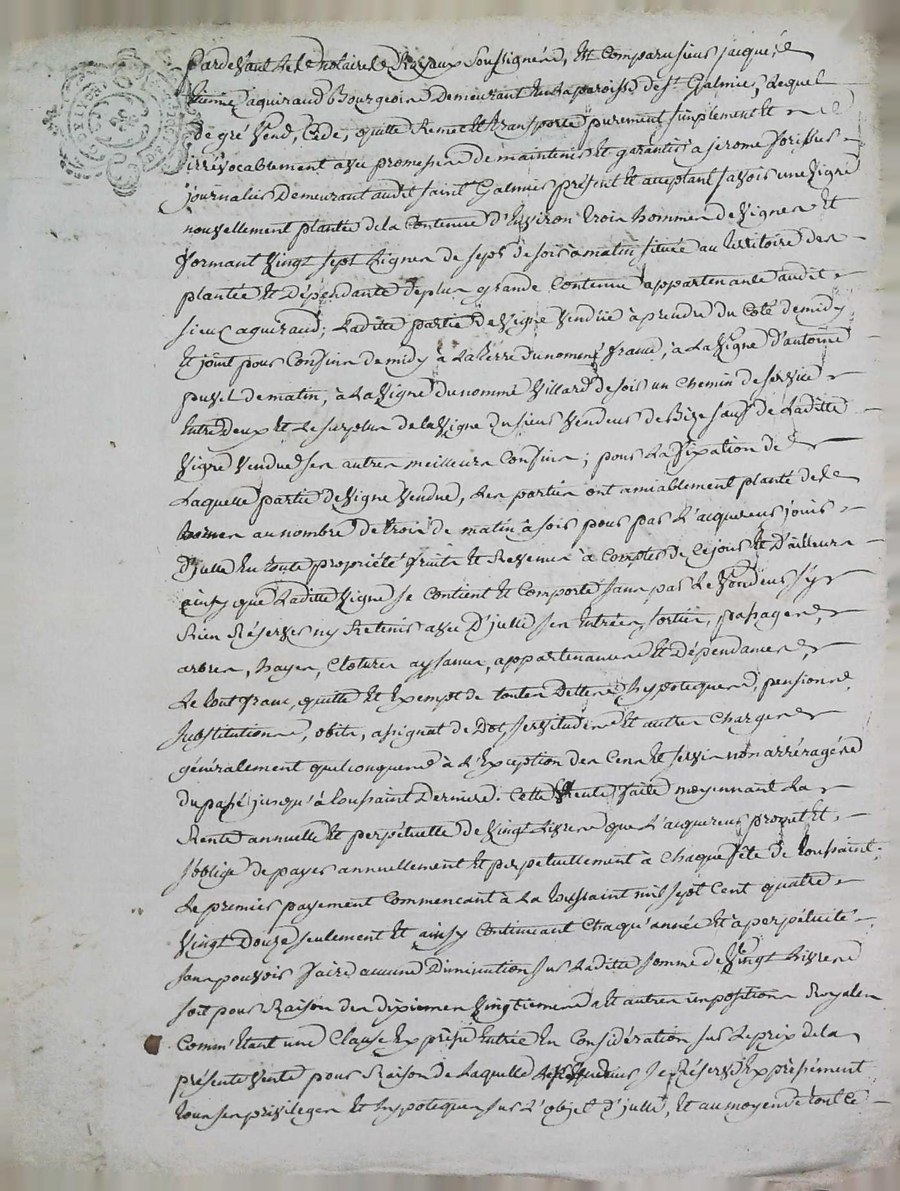 Pardevant Les notaires Royaux Soussignés, Est Comparu sieur jacque
Etienne aquiraud Bourgeois Demeurant En La paroisse de st. Galmier, Lequel
de gré Vend, Cède, quitte Remet Et transporte purement simplement Et
irrévocablement avec promesse de maintenir Et garantir à jerome
journalier Demeurant audit saint Galmier présent Et acceptant savoir une Vigne
nouvellement plantée de la Contenue d'Environ trois hommes de Vignes Et
formant Vingt sept Lignes de seps de soir à matin située au territoire des
plantée Et Dépendante de plus grande Contenue appartenante audit
sieur aquiraud; Laditte partie de Vigne Vendüe à prendre du Coté de midy
Et joint pour Confins de midy à La terre du nommé franc, à La Vigne d'antoine
de matin, à La Vigne du nommé Villard de soir un Chemin de service
Entre deux Et Le surplus de la Vigne du sieur Vendeur de Bize sauf de Laditte
Vigne Vendue ses autres meilleurs Confins; pour La fixation de
Laquelle partie de Vigne Vendue, Les parties ont amiablement planté des
bornes au nombre de trois de matin à soir pour par L'acquereur jouir
D'jcelle En toute propriété fruits Et Revenus à Compter de Ce jour Et D'ailleurs
ainsy que Laditte Vigne se Contient Et Comporte sans par Le Vendeur s'y
Rien Réserver ny Retenir avec D'jcelle ses Entrées, sorties, passages,
arbres, hayes, Clotures aysances, appartenances Et Dépendances,
Le tout franc, quitte Et Exempt de toutes Dettes hypoteques, pensions,
substitutions, obits, assignat de Dot, servitudes Et autres Charges
généralement quelconques à L'Exception des Cens Et servis non arréragés
du passé jusqu'à toussaint Derniere. Cette Vente faite moyennant La
Rente annuelle Et perpétuelle de Vingt Livres que L'acquereur promet Et
s'oblige de payer annuellement Et perpétuellement à Chaque fête de toussaint;
Le premier payement Commencant à La toussaint mil sept Cent quatre
Vingt Douze seulement Et ainsy Continuant Chaqu'année Et à perpétuité
sans pouvoir faire aucune Diminution sur Laditte somme de Vingt Livres
soit pour Raison des dixiemes Vingtiemes Et autres impositions Royales
Comm'Etant une Clause Expresse Entrée En Considération sur Le prix de la
présente Vente pour Raison de Laquelle Le Vendeur se Réserve Expressément
tous ses privileges Et hypoteques sur L'objet D'jcelle, Et au moyen de tout Ce